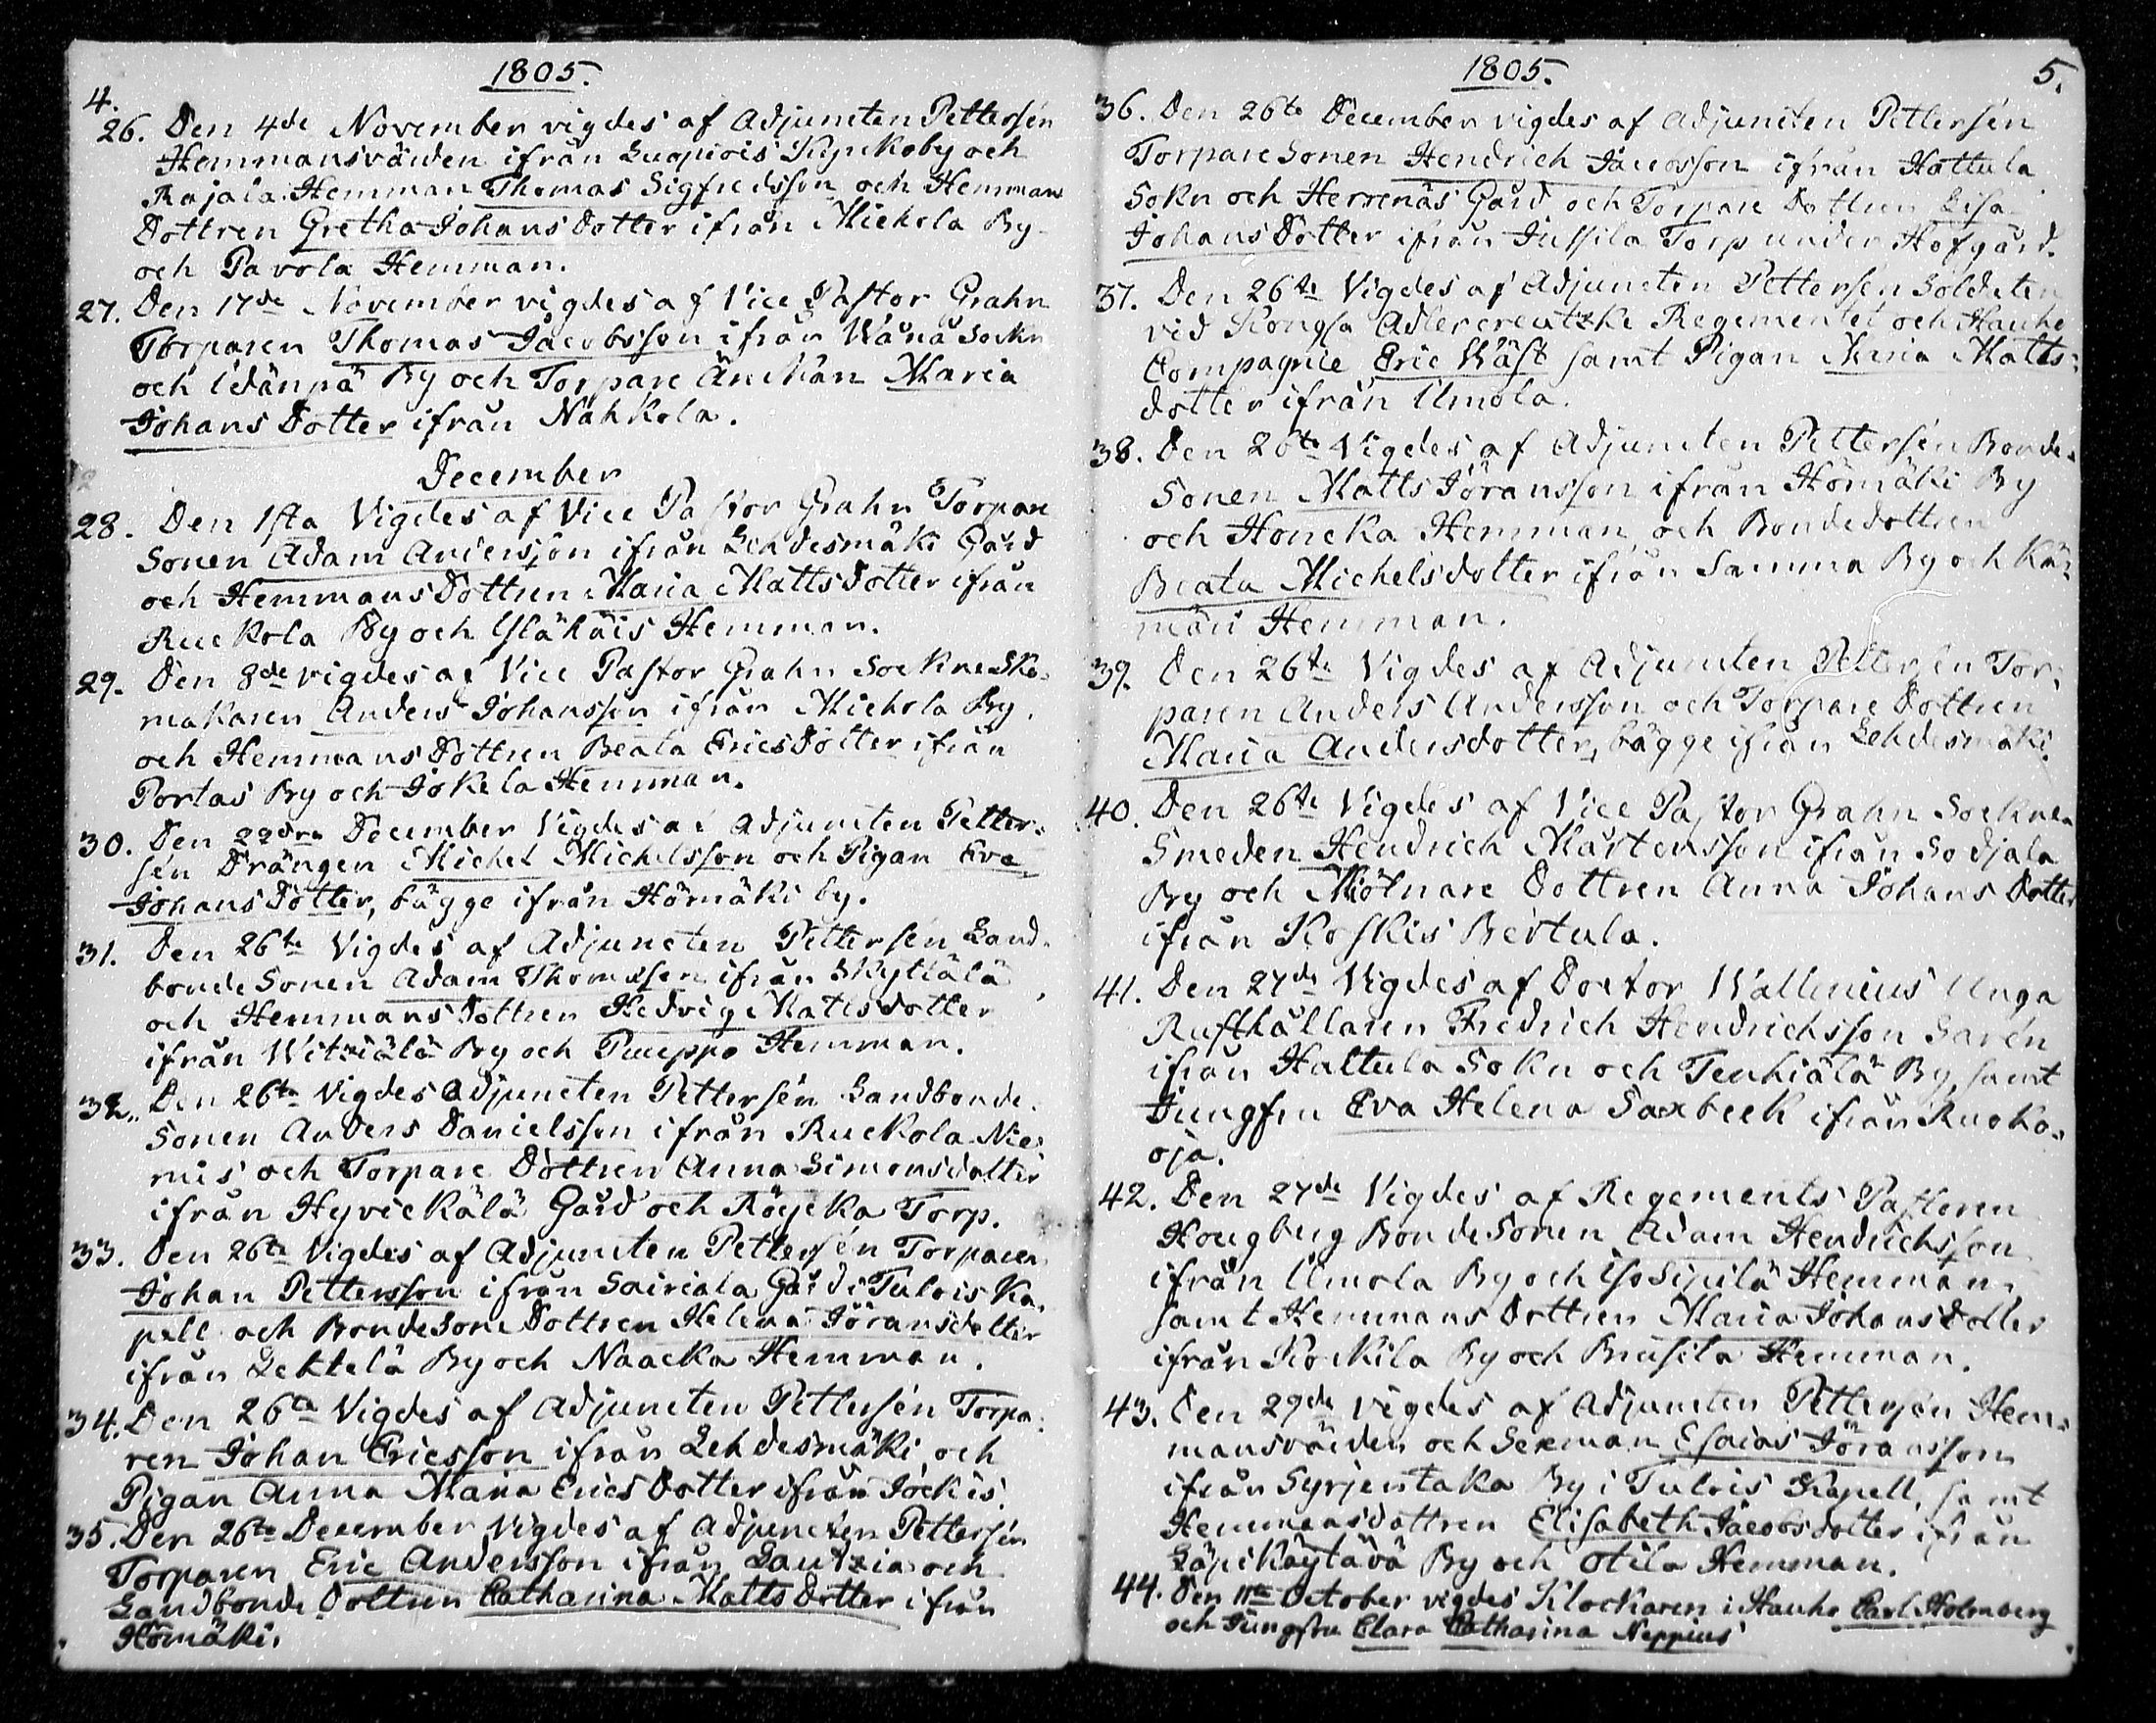 1805.
4.
26. Den 4de November vigdes af Adjuncten Pettersén
Hemmansvärden ifrån Luopiois Kyrkoby och
Rajala Hemman Thomas Sigfredsson och Hemmans
Dottren Gretha Johans Dotter ifrån Mickola By
och Pavola Hemman.
27. Den 17de November vigdes af Vice Pastor Grahn
Torparen Thomas Jacobsson ifrån Wånå Sockn
och Idänpä By och Torpare Änckan Maria
Johans Dotter ifrån Nahkola.
December
28. Den 1sta Vigdes af Vice Pastor Grahn Torpare
Sonen Adam Andersson ifrån Lehdesmäki Gård
och Hemmans Dottren Maria Mattsdotter ifrån
Ruckola By och Yläkäis Hemman.
29. Den 8de vigdes af Vice Pastor Grahn Sockne Sko-
makaren Anders Johansson ifrån Mickola By.
och Hemmans Dottren Beata Ericsdotter ifrån
Portas By och Jokela Hemman.
30. Den 22dra December Vigdes af Adjuncten Petter-
sén Drängen Michel Michelsson och Pigan Eva
Johans Dotter, bägge ifrån Hömäki by.
31. Den 26te Vigdes af Adjuncten Pettersén Land-
bonde Sonen Adam Thomsson ifrån Skyttälä
och Hemmans Dottren Hedvig Mattsdotter
ifrån Witziälä By och Pueppo Hemman.
32. Den 26te Vigdes Adjuncten Pettersén Landbonde
Sonen Anders Danielsson ifrån Ruckola Nie-
mis och Torpare Dottren Anna Simonsdotter
ifrån Hyvickälä Gård och Röycka Torp.
33. Den 26te Vigdes af Adjuncten Pettersén Torparen
Johan Pettersson ifrån Sairiala Gård i Tulois Ka-
pell och Bondesone Dottren Helena Jöransdotter
ifrån Lektelä By och Naacka Hemman.
34. Den 26te Vigdes af Adjuncten Pettersén Torpa-
ren Johan Ericsson ifrån Lehdesmäki, och
Pigan Anna Maria Erics Dotter ifrån Jockis.
35. Den 26te December Vigdes af Adjuncten Pettersén
Torparen Eric Andersson ifrån Lautzia och
Landbonde Dottren Catharina Matts Dotter ifrån
Hömäki.
1805.
5.
36. Den 26te December vigdes af Adjuncten Pettersén
Torpare Sonen Hendrich Jacobsson ifrån Hattula
Sokn och Herrenäs Gård och Torpare Dottren Lisa
Johans Dotter ifrån Jussila Torp under Hofgård.
37. Den 26te Vigdes af Adjuncten Pettersén Soldaten
vid Kongla Adlercreutzke Regementet och Hauho
Compagnie Eric Wäst samt Pigan Maria Matts-
dotter ifrån Ilmola.
38. Den 26te Vigdes af Adjuncten Pettersén Bonde-
Sonen Matts Jöransson ifrån Hömäki By
och Honcka Hemman, och Bondedottren
Beata Michelsdotter ifrån Samma By och Kär-
märi Hemman.
39. Den 26te Vigdes af Adjuncten Pettersén Tor-
paren Anders Andersson och Torpare Dottren
Maria Andersdotter, bägge ifrån Lehdesmäki.
40. Den 26te Vigdes af Vice Pastor Grahn Sockne-
Smeden Hendrich Mårtensson ifrån Sodjala
By och Miölnare Dottren Anna Johans Dotter
ifrån Koskis Bertula.
41. Den 27de Vigdes af Doctor Wallenius Unga
Rusthållaren Fredrich Hendrichsson Sarén
ifrån Hattula Sokn och Tenhiälä By, samt
Jungfru Eva Helena Saxbeck ifrån Ruoko-
oja.
42. Den 27de Vigdes af Regements Pastoren
Hougberg Bonde Sonen Adam Hendrichsson
ifrån Ilmola By och Iso Sipilä Hemman,
samt Hemmans Dottren Maria Johans Dotter
ifrån Kockila By och Brusila Hemman.
43. Den 29de vigdes af Adjuncten Pettersén Hem-
mansvärden och Sexman Esaias Jöransson
ifrån Syrjentaka By i Tulois Kapell, samt
Hemmansdottren Elisabeth Jacobsdotter ifrån
Lapikäytävä By och Otila Hemman.
44. Den 11te October vigdes Klockaren i Hauho Carl Holmberg
och Jungfru Clara Catharina Neppius